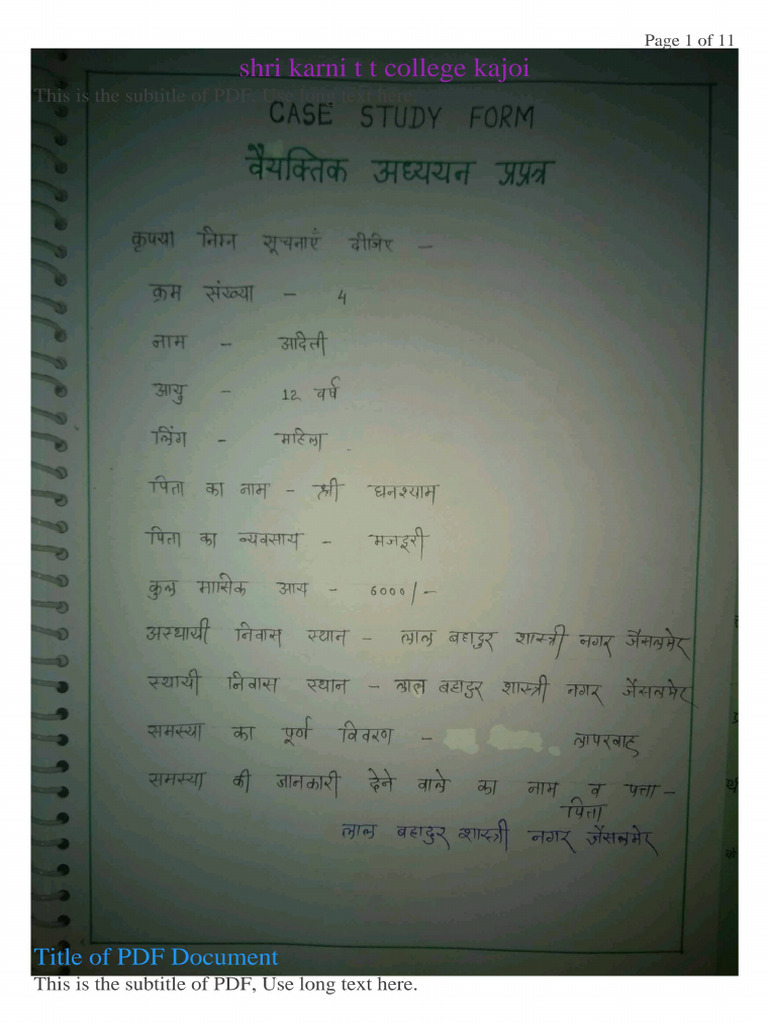 Page 1 of 11
shri karni t t college kajoi
This is the subtitle of PDF, Use long text here.
CASE STUDY FORM
वैयक्तिक अध्ययन प्रपत्र
कृपया निम्न सूचनाएँ दीजिए -
क्रम संख्या - 4
नाम - आदिती
आयु - 12 वर्ष
लिंग - महिला
पिता का नाम - श्री घनश्याम
पिता का व्यवसाय - मजदूरी
कुल मासिक आय - 6000/-
अस्थायी निवास स्थान - लाल बहादुर शास्त्री नगर जैसलमेर
स्थायी निवास स्थान - लाल बहादुर शास्त्री नगर जैसलमेर
समस्या का पूर्ण विवरण - लापरवाह
समस्या की जानकारी देने वाले का नाम व पत्ता -
पिता
लाल बहादुर शास्त्री नगर जैसलमेर
Title of PDF Document
This is the subtitle of PDF, Use long text here.